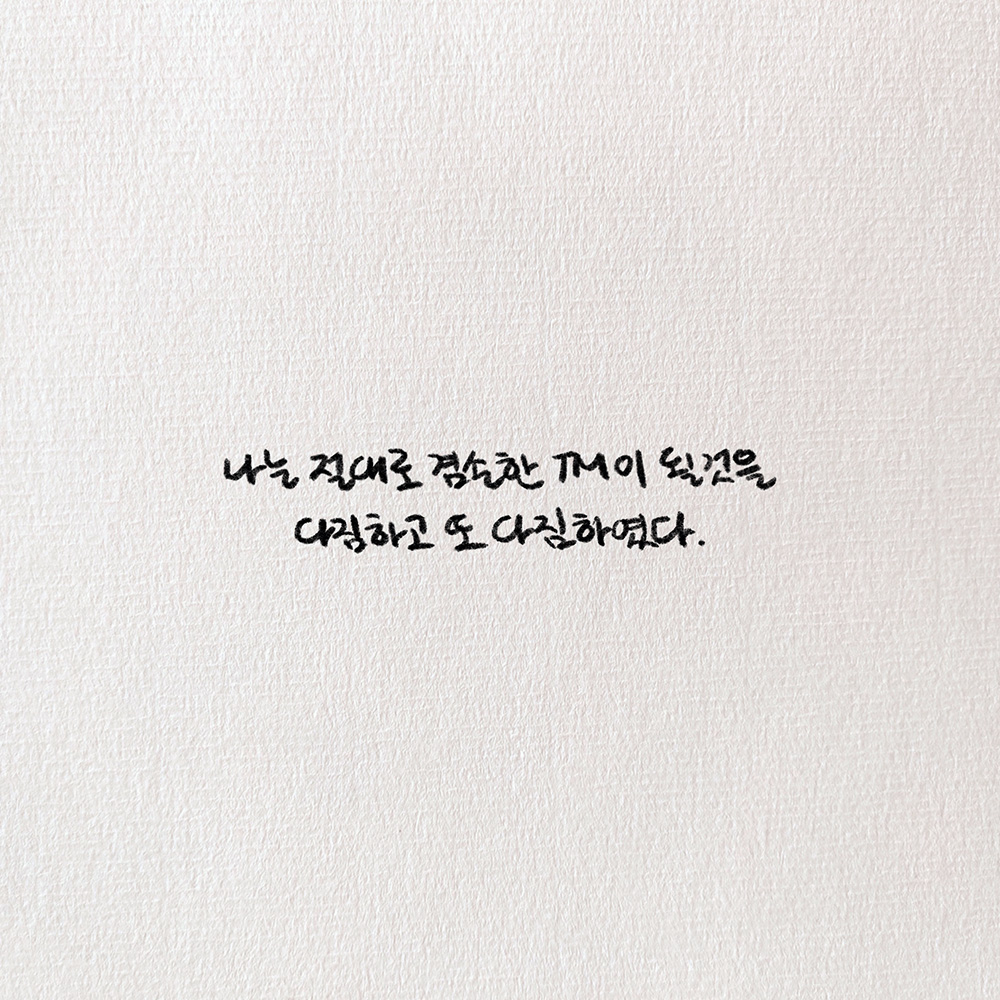 나는 절대로 겸손한 TM이 될것을
다짐하고 또 다짐하였다.